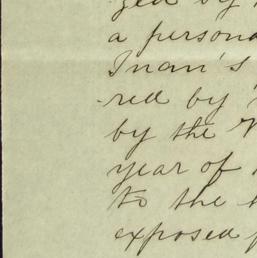 ged by
a person
Inan's
red by
by the
year of
to the
exposed